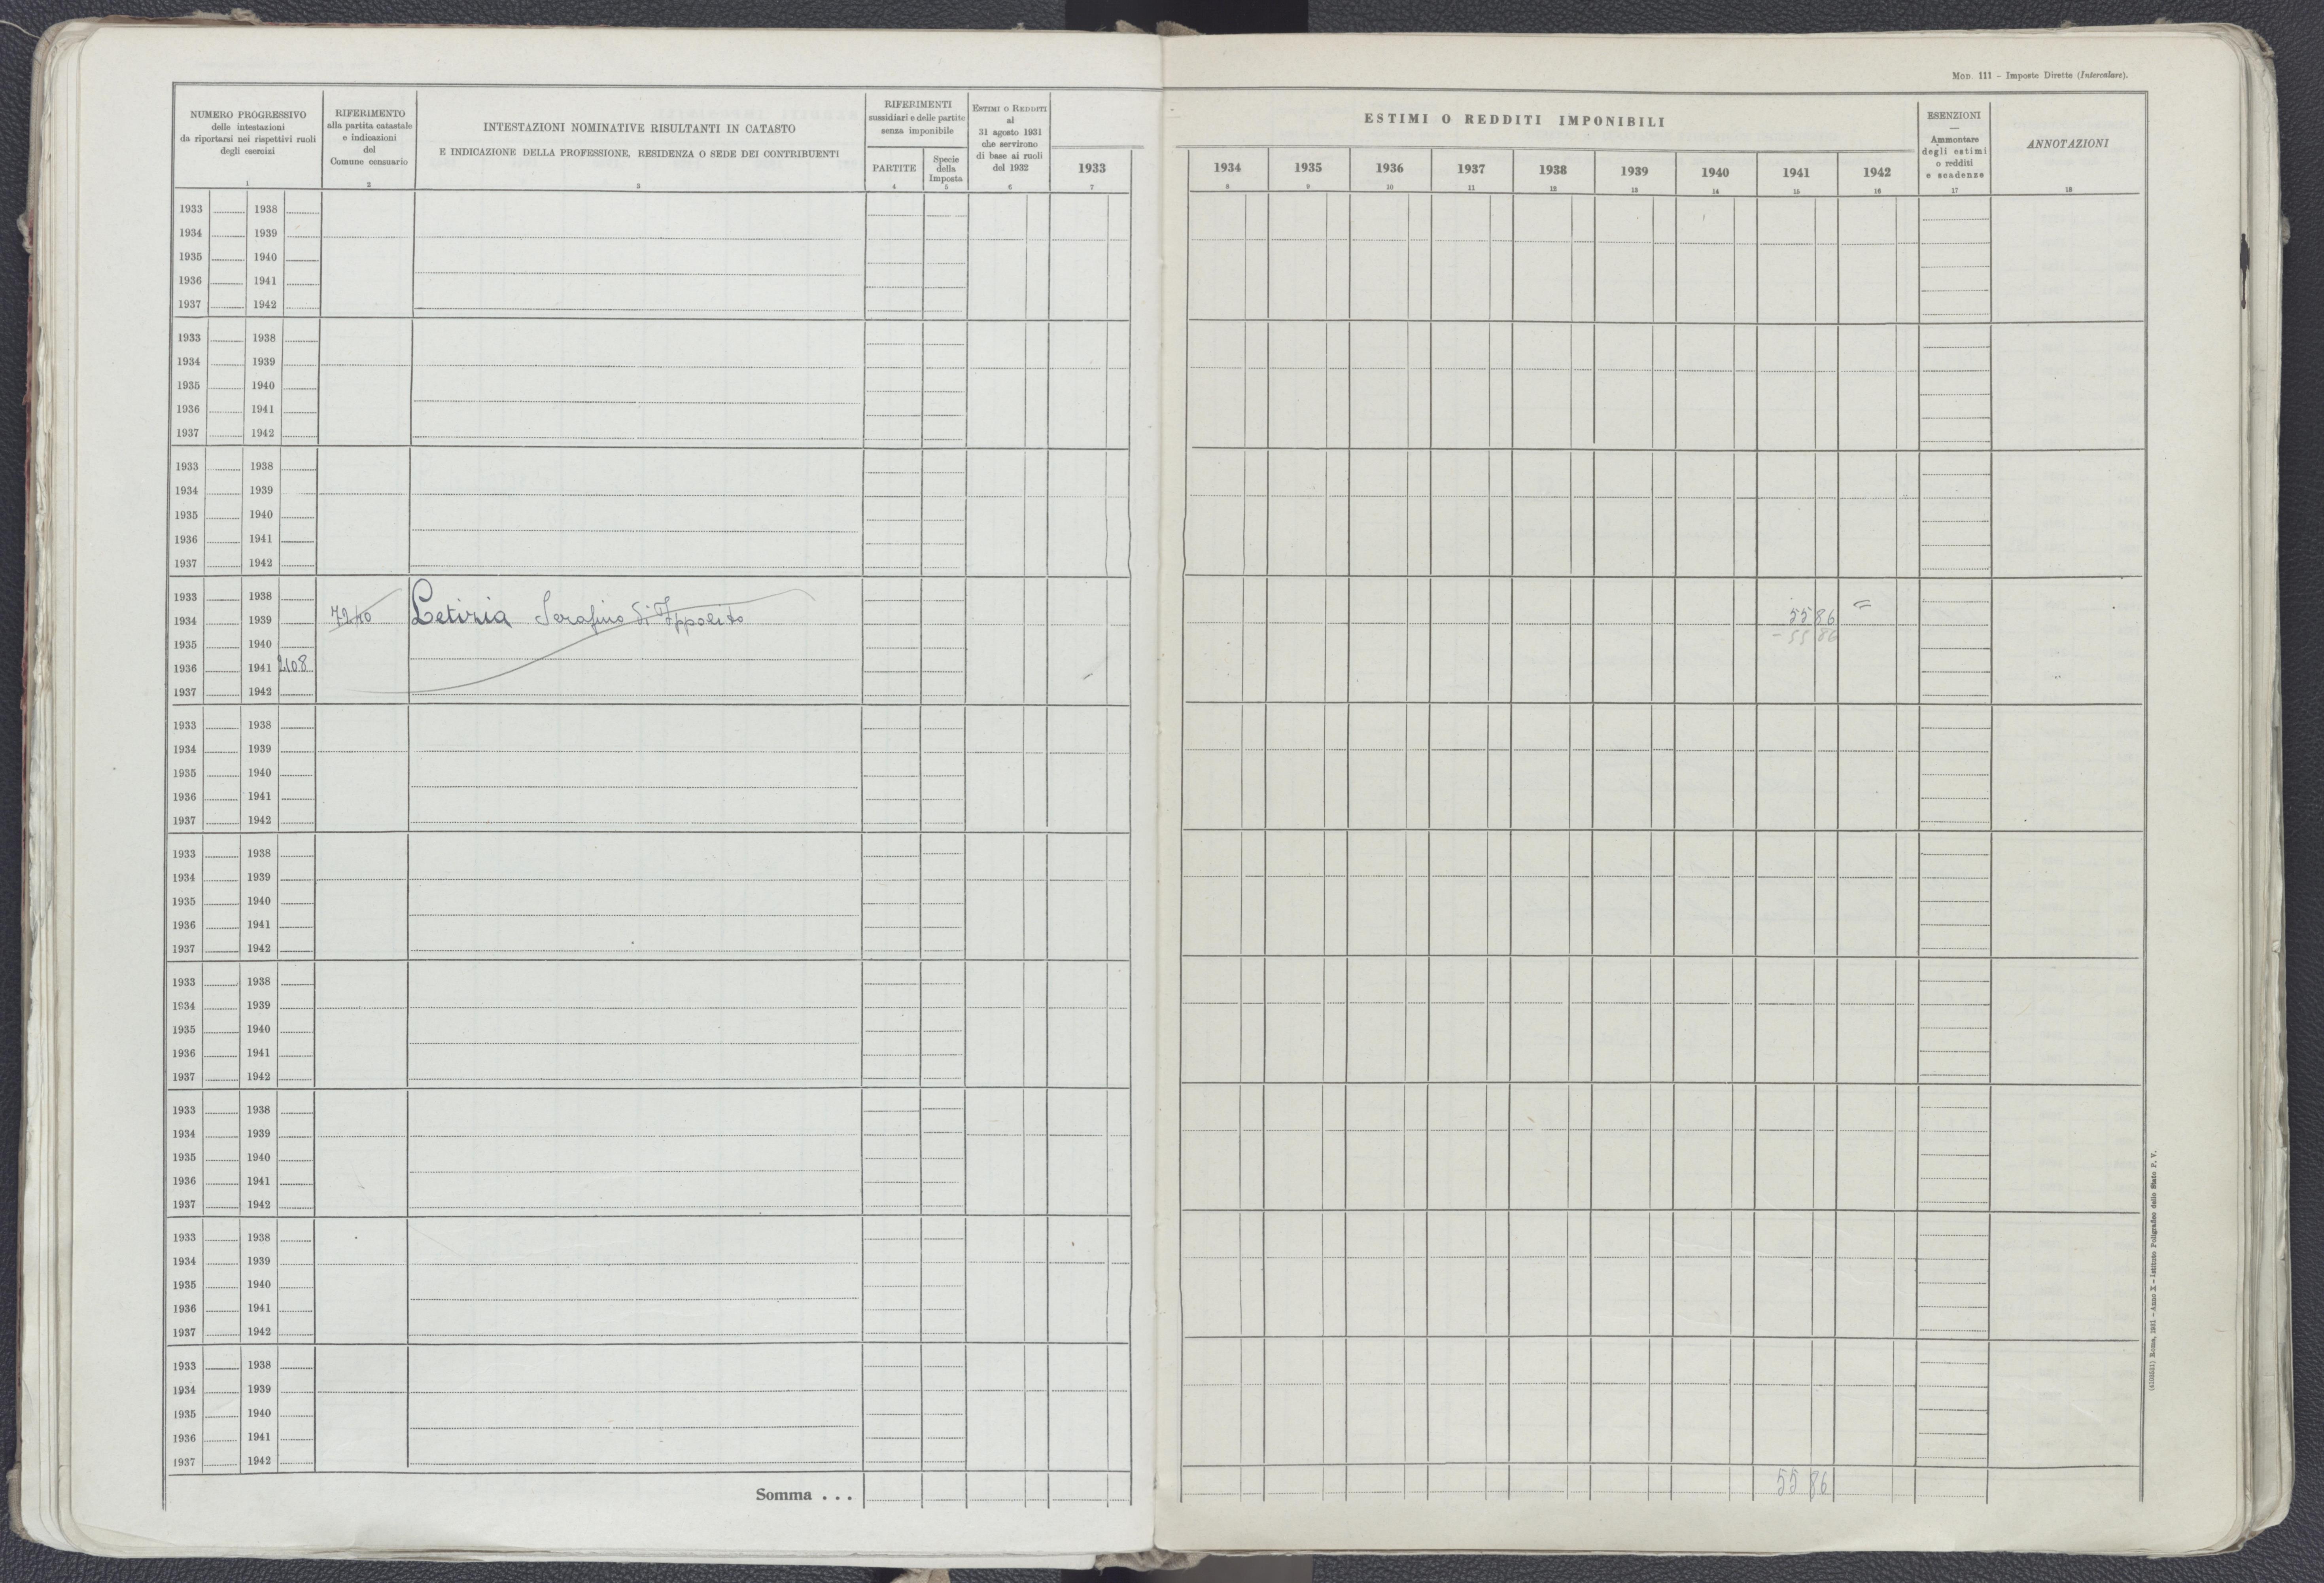 MOD. 111 – Imposte Dirette (Intercalare).
NUMERO PROGRESSIVO
delle intestazioni
da riportarsi nei rispettivi ruoli
degli esercizi
1
RIFERIMENTO
alla partita catastale
e indicazioni
del
Comune censuario
2
INTESTAZIONI NOMINATIVE RISULTANTI IN CATASTO
E INDICAZIONE DELLA PROFESSIONE, RESIDENZA O SEDE DEI CONTRIBUENTI
3
RIFERIMENTI
sussidiari e delle partite
senza imponibile
PARTITE
4
Specie
della
Imposta
5
ESTIMI O REDDITI
al
31 agosto 1931
che servirono
di base ai ruoli
del 1932
6
1933
7
ESTIMI O REDDITI IMPONIBILI
1934 1935 1936 1937 1938 1939 1940 1941 1942
8 9 10 11 12 13 14 15 16
ESENZIONI
—
Ammontare
degli estimi
o redditi
e scadenze
17
ANNOTAZIONI
18
1933 1938
1934 1939
1935 1940
1936 1941
1937 1942
1933 1938
1934 1939
1935 1940
1936 1941
1937 1942
1933 1938
1934 1939
1935 1940
1936 1941
1937 1942
1933 1938
1934 1939 7240 Letizia Serafino di Ippolito 55 86 =
1935 1940 - 55 86
1936 1941 2108
1937 1942
1933 1938
1934 1939
1935 1940
1936 1941
1937 1942
1933 1938
1934 1939
1935 1940
1936 1941
1937 1942
1933 1938
1934 1939
1935 1940
1936 1941
1937 1942
1933 1938
1934 1939
1935 1940
1936 1941
1937 1942
1933 1938
1934 1939
1935 1940
1936 1941
1937 1942
1933 1938
1934 1939
1935 1940
1936 1941
1937 1942
Somma . . . 55 86
Roma, 1931 – Anno X – Istituto Poligrafico dello Stato P. V.